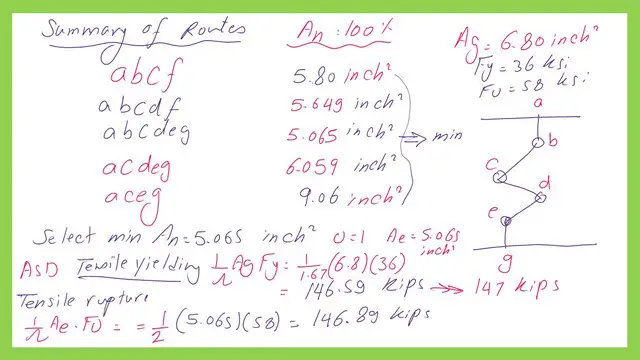 Summary of Routes An: 100%
Ag = 6.80 inch²
Fy = 36 ksi
FU = 58 ksi
abcf 5.80 inch²
abcdf 5.649 inch²
abcdeg 5.065 inch² ⇒ min
acdeg 6.059 inch²
aceg 9.06 inch²
a
b
c
d
e
g
Select min An = 5.065 inch² U=1 Ae = 5.065 inch²
ASD Tensile yielding 1/Ω Ag Fy = 1/1.67 (6.8)(36)
= 146.59 kips ⇒ 147 kips
Tensile rupture
1/Ω Ae . FU = = 1/2 (5.065)(58) = 146.89 kips